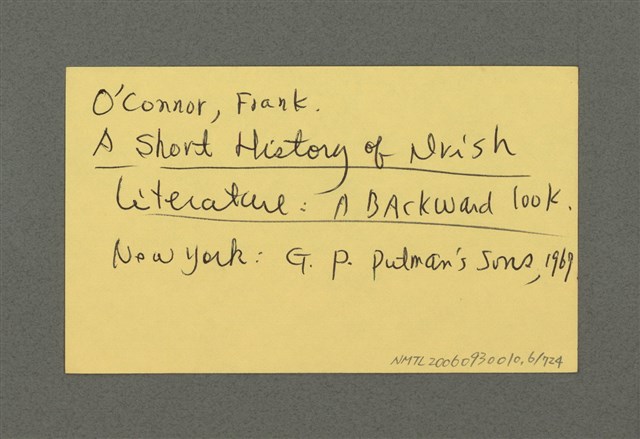 O'Connor, Frank.
A Short History of Irish
Literature: A Backward look.
New York: G. P. Putman's Sons, 1969
NMTL20060930010.6/724